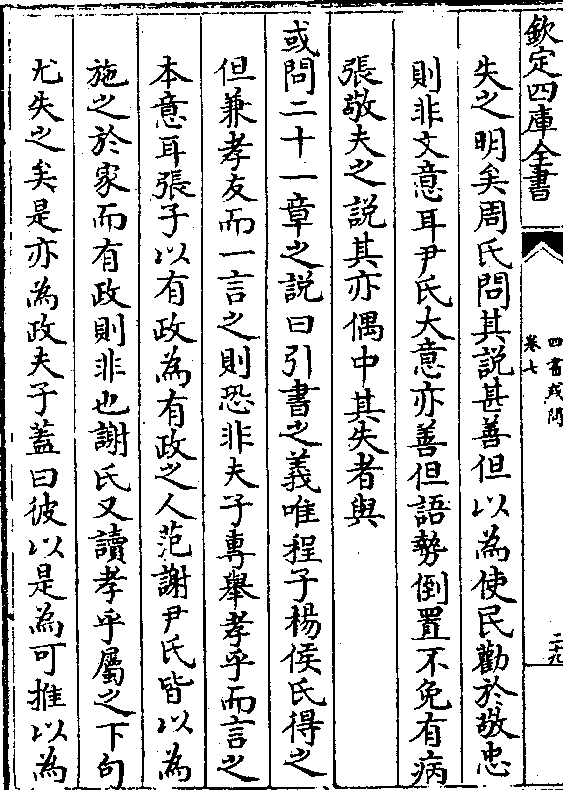 欽定四庫全書
四書或問
卷七
二十九
失之明矣周氏問其説甚善但以為使民勸於敬忠
則非文意耳尹氏大意亦善但語勢倒置不免有病
張敬夫之説其亦偶中其失者與
或問二十一章之説曰引書之義唯程子楊侯氏得之
但兼孝友而一言之則恐非夫子專舉孝乎而言之
本意耳張子以有政為有政之人范謝尹氏皆以為
施之於家而有政則非也謝氏又讀孝乎屬之下句
尤失之矣是亦為政夫子蓋曰彼以是為可推以為